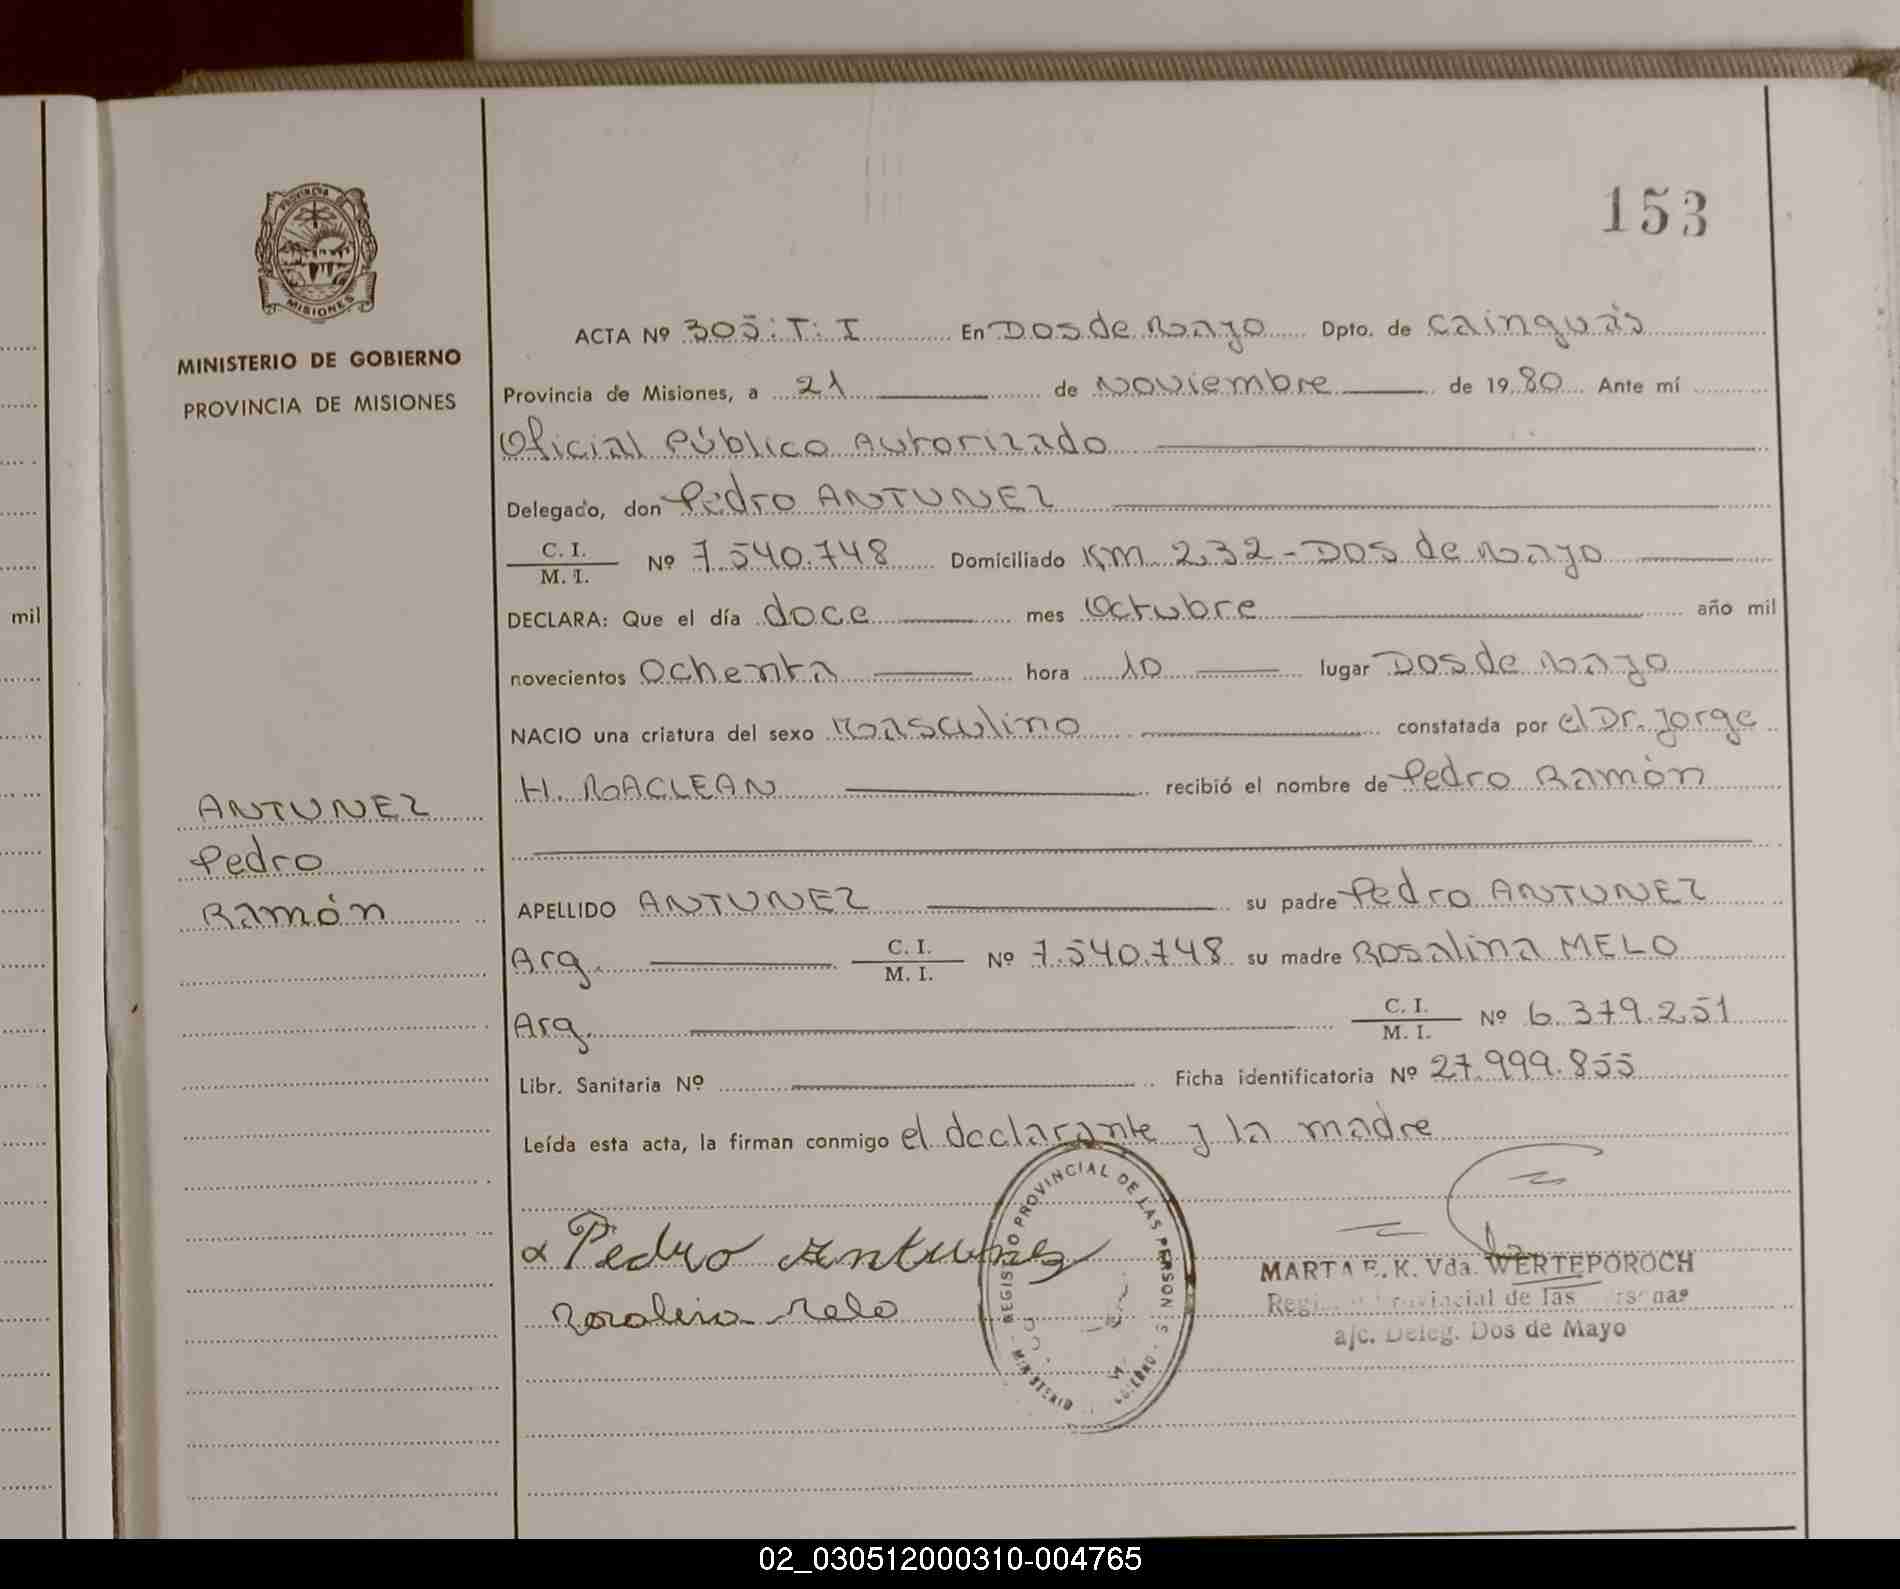 153
PROVINCIA DE
MISIONES
MINISTERIO DE GOBIERNO
PROVINCIA DE MISIONES
ACTA Nº 305: T: I En Dos de Mayo Dpto. de Cainguás
Provincia de Misiones, a 21 de Noviembre de 1980 Ante mí
Oficial Público Autorizado
Delegado, don Pedro ANTUNEZ
C. I. / M. I. Nº 7.540.748 Domiciliado KM 232-Dos de Mayo
DECLARA: Que el día doce mes Octubre año mil
mil
novecientos Ochenta hora 10 lugar Dos de Mayo
NACIO una criatura del sexo Masculino constatada por el Dr. Jorge
H. MACLEAN recibió el nombre de Pedro Ramón
ANTUNEZ
Pedro
Ramón
APELLIDO ANTUNEZ su padre Pedro ANTUNEZ
Arg. C. I. / M. I. Nº 7.540.748 su madre Rosalina MELO
Arg. C. I. / M. I. Nº 6.379.251
Libr. Sanitaria Nº Ficha identificatoria Nº 27.999.855
Leída esta acta, la firman conmigo el declarante y la madre
Pedro Antunez
Rosalina Melo
REGISTRO PROVINCIAL DE LAS PERSONAS
MINISTERIO GOBIERNO
MARTA E. K. Vda. WERTEPOROCH
Registro Provincial de las Personas
a/c. Deleg. Dos de Mayo
02_030512000310-004765